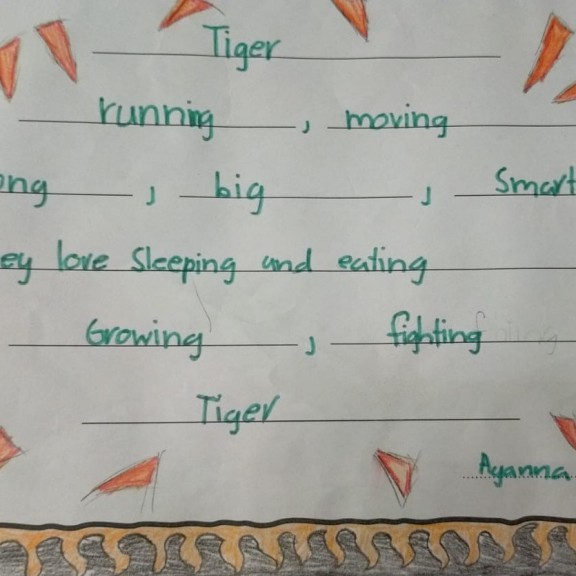 Tiger
running, moving
ong, big, Smart
ey love Sleeping and eating
Growing, fighting
Tiger
Ayanna